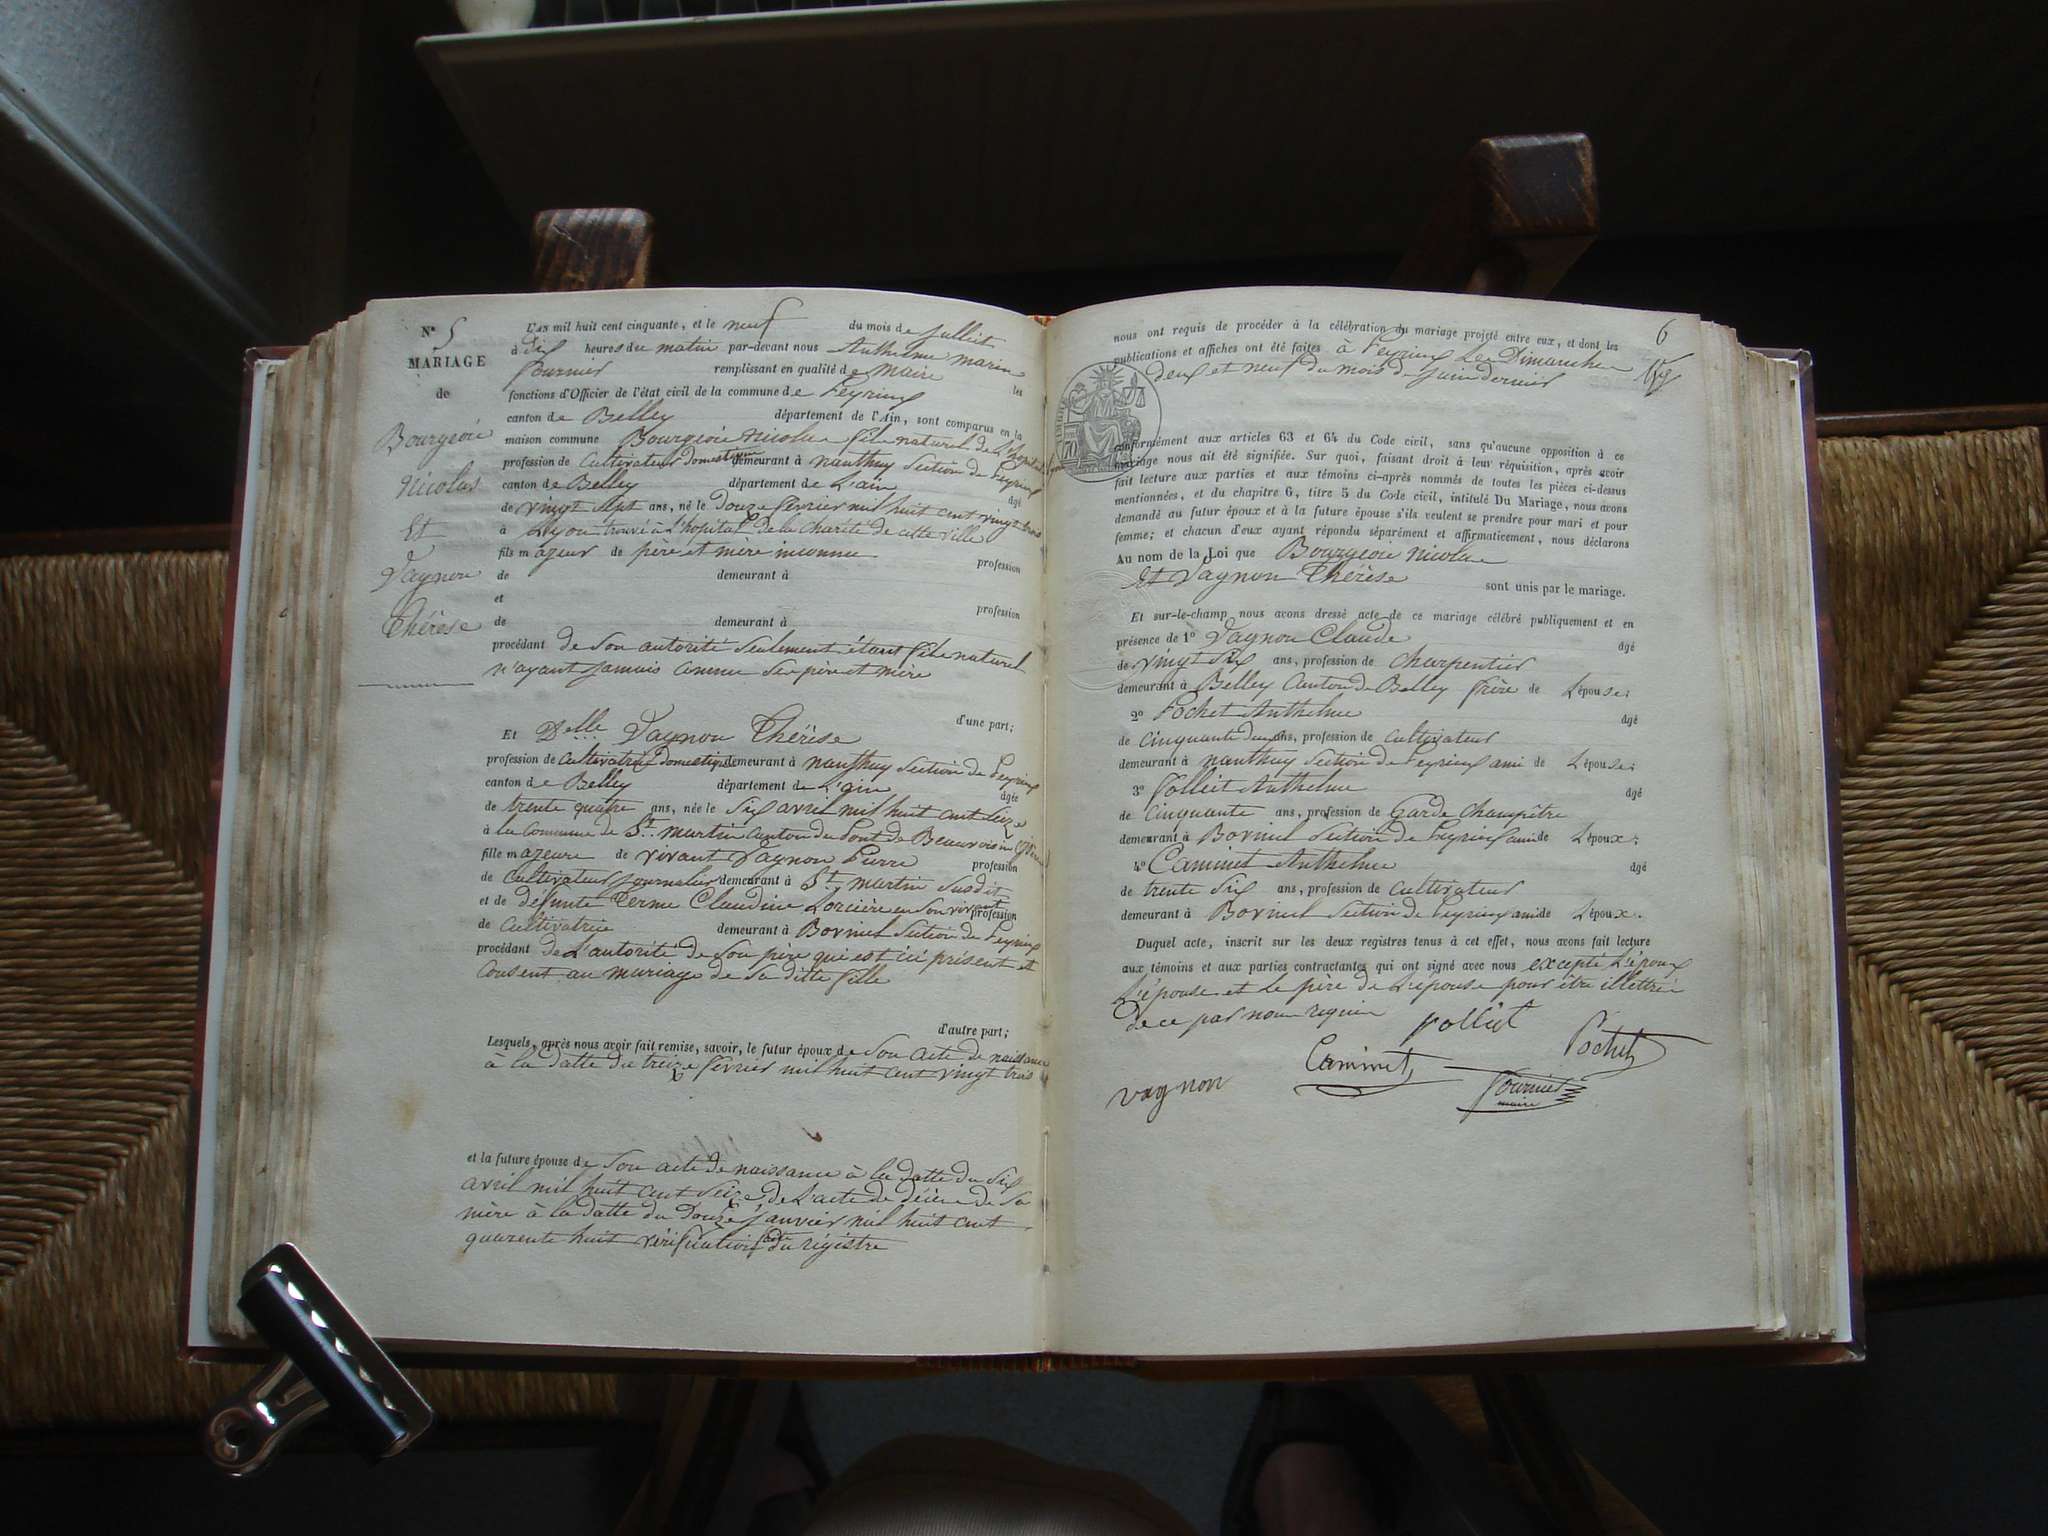 N° 5
MARIAGE
de
Bourgeois
Nicolas
Et
Vagnon
Thérèse
L'AN mil huit cent cinquante, et le neuf du mois de Julliet
à dix heures du matin par-devant nous Anthelme marin
fournier remplissant en qualité de maire les
fonctions d'Officier de l'état civil de la commune de Peyrieux
canton de Belley département de l'Ain, sont comparus en la
maison commune Bourgeois Nicolas fils naturel de l'hopital
profession de Cultivateur domestique demeurant à nanthuy Section de Peyrieux
canton de Belley département de L'ain âgé
de vingt sept ans, né le Douze février mil huit cent vingt trois
à Lyon trouvé à L'hôpital de la charité de cette ville
fils majeur de père et mère inconnu profession
de demeurant à
et profession
de demeurant à
procédant de Son autorité Seulement étant fils naturel
n'ayant jamais connu Ses père et mère
d'une part;
Et Delle Vagnon Thérèse
profession de Cultivatrice domestique demeurant à nanthuy Section de Peyrieux
canton de Belley département de L'ain âgée
de trente quatre ans, née le Six avril mil huit cent Seize
à la Commune de St. martin canton du Pont de Beauvoisin (Isère)
fille majeure de vivant Vagnon Pierre profession
de Cultivateur journalier demeurant à St. martin Susdit
et de defunte Terme Claudine Lorcière en Son vivant profession
de Cultivatrice demeurant à Bovinel Section de Peyrieux
procédant de L'autorité de Son père qui est ici présent et
Consent au mariage de Sa ditte fille
d'autre part;
Lesquels, après nous avoir fait remise, savoir, le futur époux de Son acte de naissance
à la datte du treize février mil huit cent vingt trois
et la future épouse de Son acte de naissance à la datte du Six
avril mil huit cent Seize, de L'acte de décès de Sa
mère à la datte du Douze janvier mil huit cent
quarente huit vérification faite du régistre
6
nous ont requis de procéder à la célébration du mariage projeté entre eux, et dont les
publications et affiches ont été faites à Peyrieux Les Dimanches
deux et neuf du mois de juin dernier
TIMBRE
conformément aux articles 63 et 64 du Code civil, sans qu'aucune opposition à ce
mariage nous ait été signifiée. Sur quoi, faisant droit à leur réquisition, après avoir
fait lecture aux parties et aux témoins ci-après nommés de toutes les pièces ci-dessus
mentionnées, et du chapitre 6, titre 5 du Code civil, intitulé Du Mariage, nous avons
demandé au futur époux et à la future épouse s'ils veulent se prendre pour mari et pour
femme; et chacun d'eux ayant répondu séparément et affirmativement, nous déclarons
Au nom de la Loi que Bourgeois Nicolas
Et Vagnon Thérèse sont unis par le mariage.
Et sur-le-champ nous avons dressé acte de ce mariage célébré publiquement et en
présence de 1° Vagnon Claude âgé
de vingt Six ans, profession de charpentier
demeurant à Belley Canton de Belley frère de L'épouse;
2° Pochet Anthelme âgé
de Cinquante deux ans, profession de Cultivateur
demeurant à nanthuy Section de Peyrieux ami de L'épouse;
3° Jolliet Anthelme âgé
de Cinquante ans, profession de Garde champêtre
demeurant à Bovinel Section de Peyrieux ami de L'époux;
4° Caminet Anthelme âgé
de trente Six ans, profession de Cultivateur
demeurant à Bovinel Section de Peyrieux ami de L'époux.
Duquel acte, inscrit sur les deux registres tenus à cet effet, nous avons fait lecture
aux témoins et aux parties contractantes qui ont signé avec nous excepté L'époux
L'épouse et Le père de L'épouse pour être illettrés
de ce par nous requis jolliet Pochet
Caminet
vagnon fournier
maire